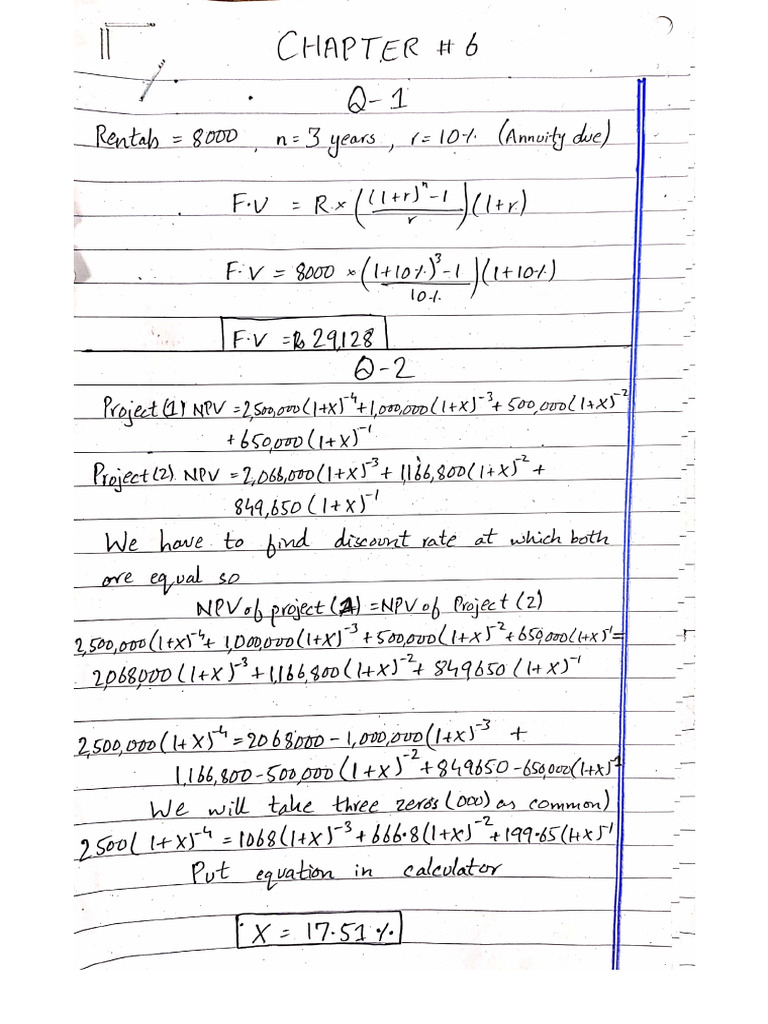 CHAPTER # 6
Q-1
Rentals = 8000, n = 3 years, r = 10% (Annuity due)
F.V = R × (((1+r)^n - 1)/r)(1+r)
F.V = 8000 × ((1+10%)^3 - 1)/10%)(1+10%)
F.V = Rs 29,128
Q-2
Project (1) NPV = 2,500,000(1+X)^-4 + 1,000,000(1+X)^-3 + 500,000(1+X)^-2
+ 650,000(1+X)^-1
Project (2) NPV = 2,068,000(1+X)^-3 + 1,166,800(1+X)^-2 +
849,650(1+X)^-1
We have to find discount rate at which both
are equal so
NPV of project (1) = NPV of Project (2)
2,500,000(1+X)^-4 + 1,000,000(1+X)^-3 + 500,000(1+X)^-2 + 650,000(1+X)^-1 =
2,068,000(1+X)^-3 + 1,166,800(1+X)^-2 + 849650(1+X)^-1
2,500,000(1+X)^-4 = 2068000 - 1,000,000(1+X)^-3 +
1,166,800 - 500,000(1+X)^-2 + 849650 - 650,000(1+X)^-1
We will take three zeros (000) as common)
2500(1+X)^-4 = 1068(1+X)^-3 + 666.8(1+X)^-2 + 199.65(1+X)^-1
Put equation in calculator
X = 17.51%